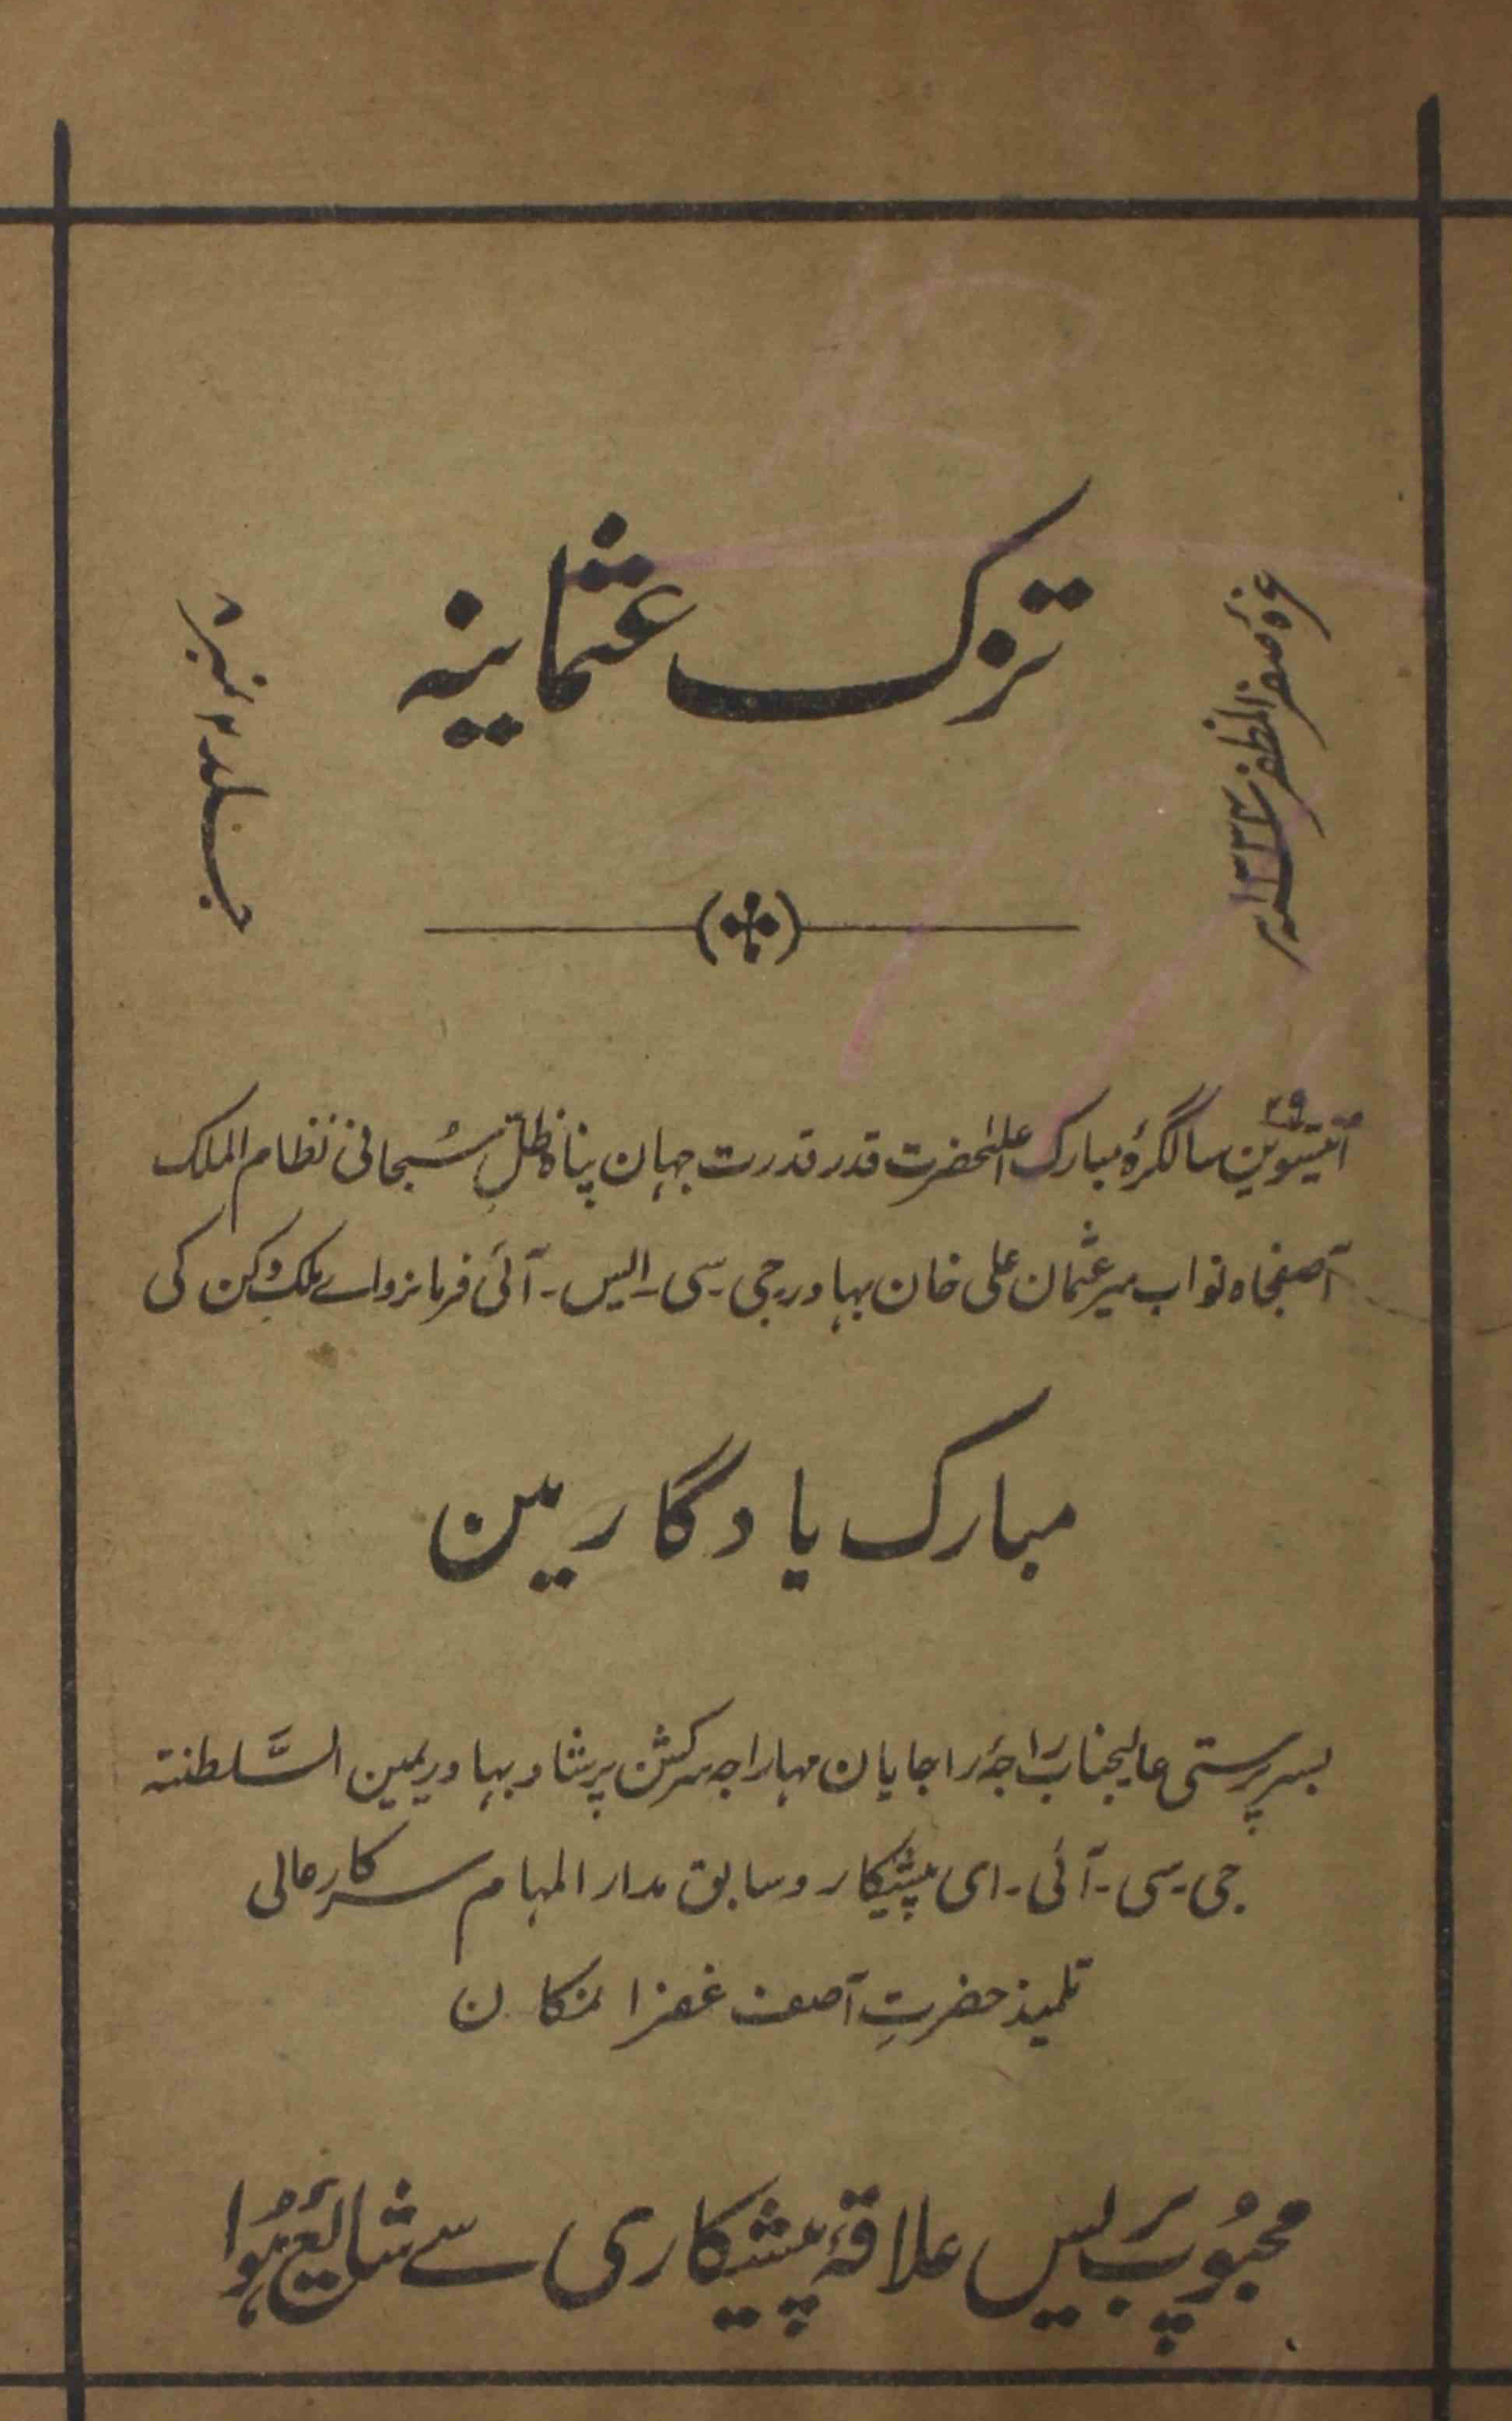 تزک عثمانیہ
غرہ صفر المظفر
جلد ۲ نمبر ۸
انتیسوین سالگرۂ مبارک اعلٰحضرت قدر قدرت جہان پناہ ظلِّ سُبحانی نظام الملک
آصفجاہ نواب میر عثمان علی خان بہادر جی۔ سی۔ ایس۔ آئی فرمانروائے ملک دکن کی
مبارک یادگار مین
بسر پرستی عالیجناب راجۂ راجایان مہاراجہ سر کشن پرشاد بہادر یمین السَّلطنتہ
جی۔ سی۔ آئی۔ ای پیشکار و سابق مدار المہام سرکار عالی
تلمیذ حضرتِ آصف غفرانمکان
محبُوب پریس علاقۂ پیشکاری سے شایع ہُوا